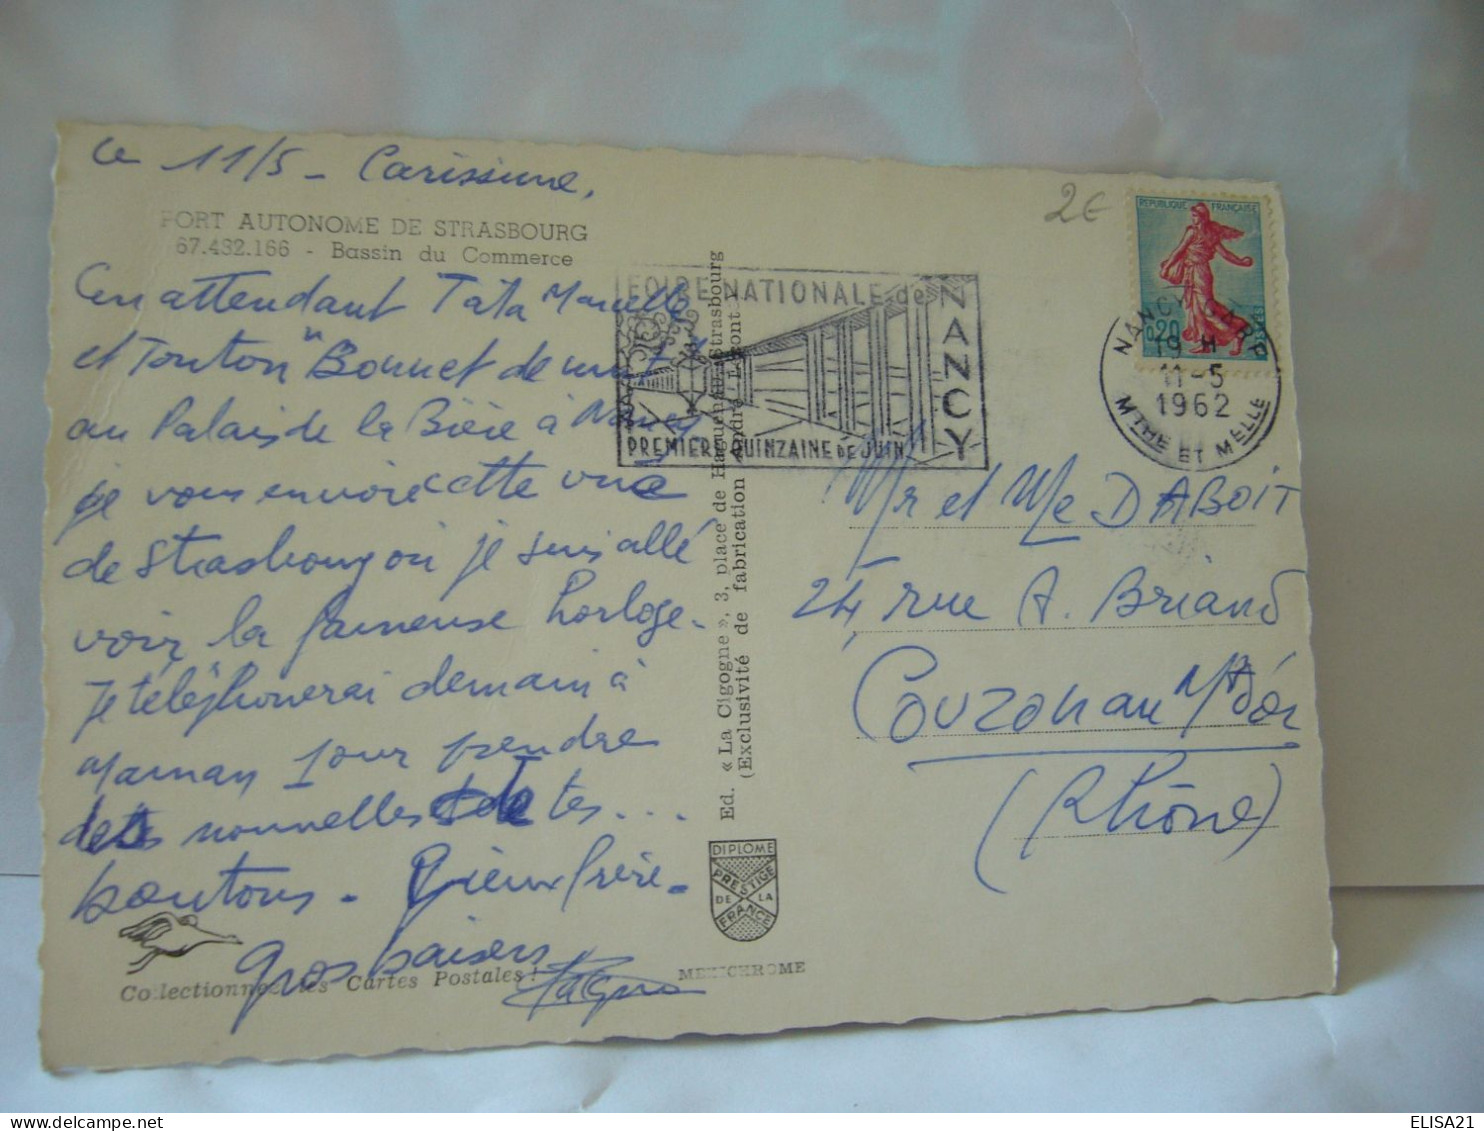 Le 11/5 - Carissime,
PORT AUTONOME DE STRASBOURG
67.482.166 - Bassin du Commerce
En attendant Tata Marcelle
et Tonton "Bonnet de nuit"
au Palais de la Bière à Nancy
je vous envoie cette vue
de Strasbourg où je suis allé
voir la fameuse horloge.
Je téléphonerai demain à
Maman pour prendre
des nouvelles de tes ...
boutons. Vieux frère.
Gros baisers
Collectionnez les Cartes Postales !
MEXICHROME
Ed. « La Cigogne », 3, place de Haguenau, Strasbourg
(Exclusivité de fabrication André Leconte)
DIPLOME
PRESTIGE
DE LA
FRANCE
2€
FOIRE NATIONALE de
NANCY
PREMIERE QUINZAINE DE JUIN
REPUBLIQUE FRANÇAISE
0,20
NANCY
19 H
11-5
1962
MTHE ET MELLE
Mr et Me DABOIT
24, rue A. Briand
Couzon au Mt d'or
(Rhône)
ELISA21